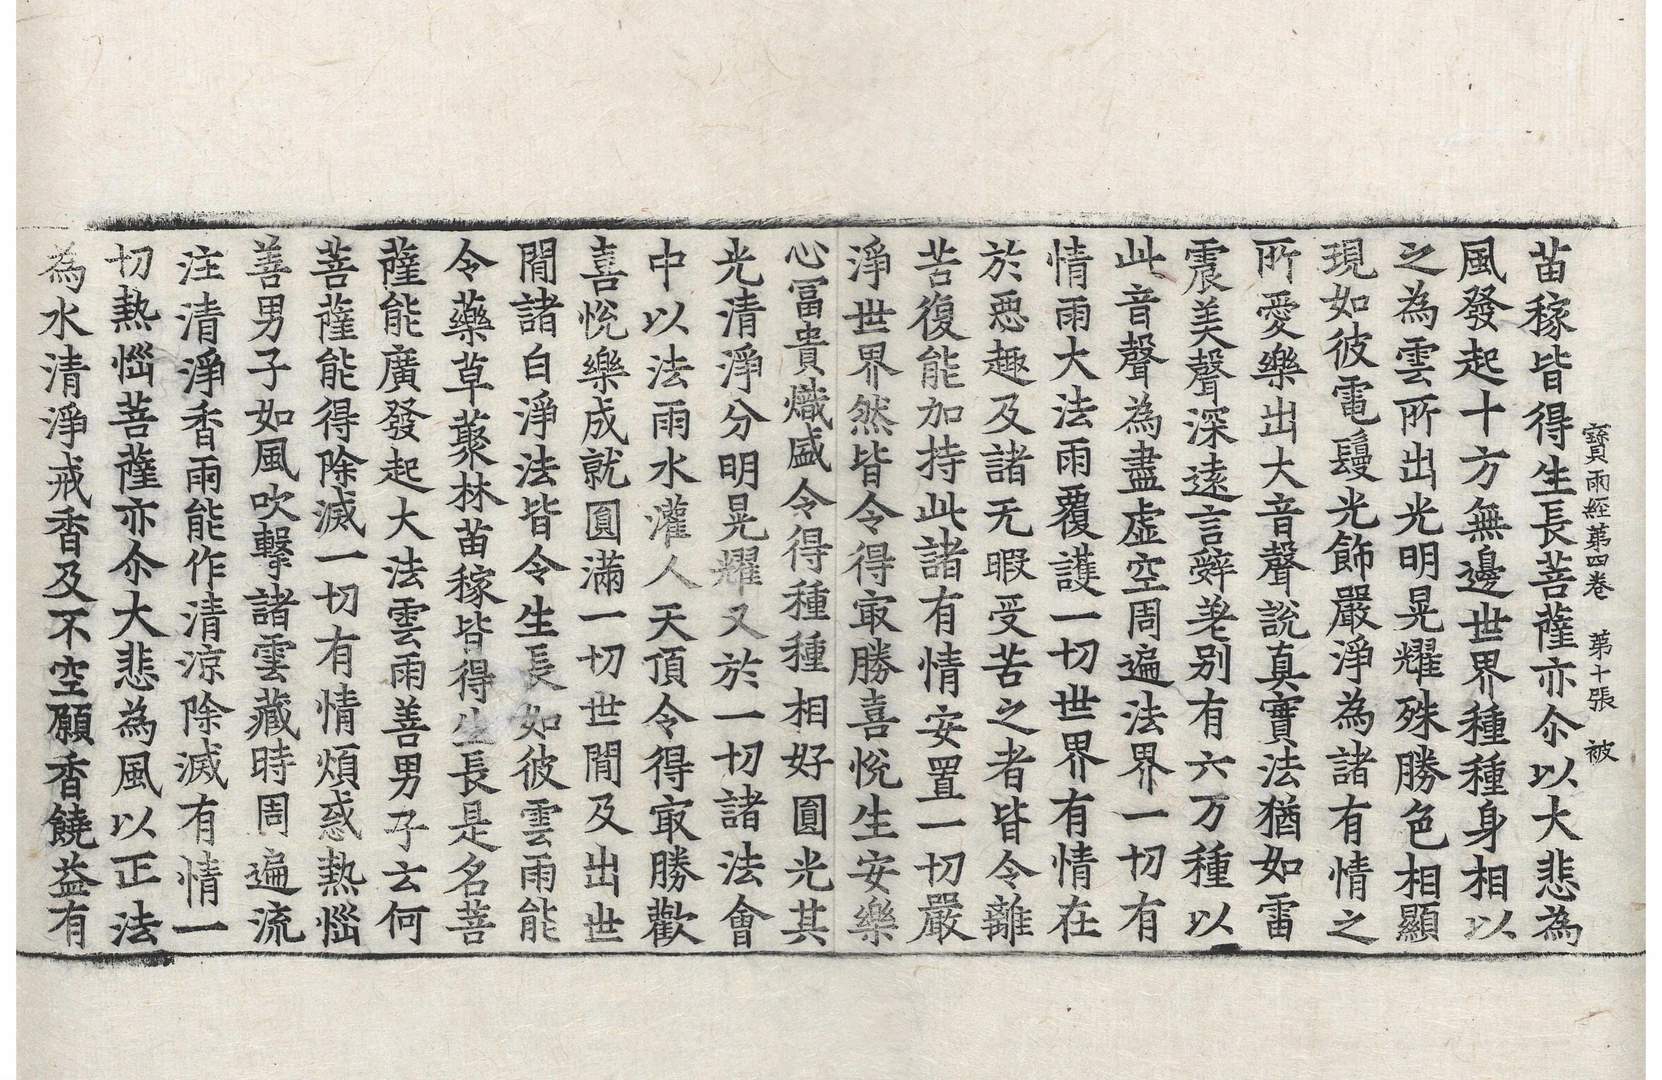 寶雨経苐四卷　苐十張　被
苗稼皆得生長菩薩亦尒以大悲為
風發起十方無邊世界種種身相以
之為雲所出光明晃耀殊勝色相顯
現如彼電鬘光飾嚴淨為諸有情之
所愛樂出大音聲說真實法猶如雷
震美聲深遠言辭差别有六万種以
此音聲為盡虛空周遍法界一切有
情雨大法雨覆護一切世界有情在
於惡趣及諸无暇受苦之者皆令離
苦復能加持此諸有情安置一切嚴
淨世界然皆令得㝡勝喜悅生安樂
心冨貴熾盛令得種種相好圓光其
光清淨分明晃耀又於一切諸法會
中以法雨水灌人天頂令得㝡勝歡
喜悅樂成就圓滿一切世間及出世
間諸白淨法皆令生長如彼雲雨能
令藥草藂林苗稼皆得生長是名菩
薩能廣發起大法雲雨善男子云何
菩薩能得除滅一切有情煩惑熱惱
善男子如風吹擊諸雲藏時周遍流
注清淨香雨能作清涼除滅有情一
切熱惱菩薩亦尒大悲為風以正法
為水清淨戒香及不空願香饒益有